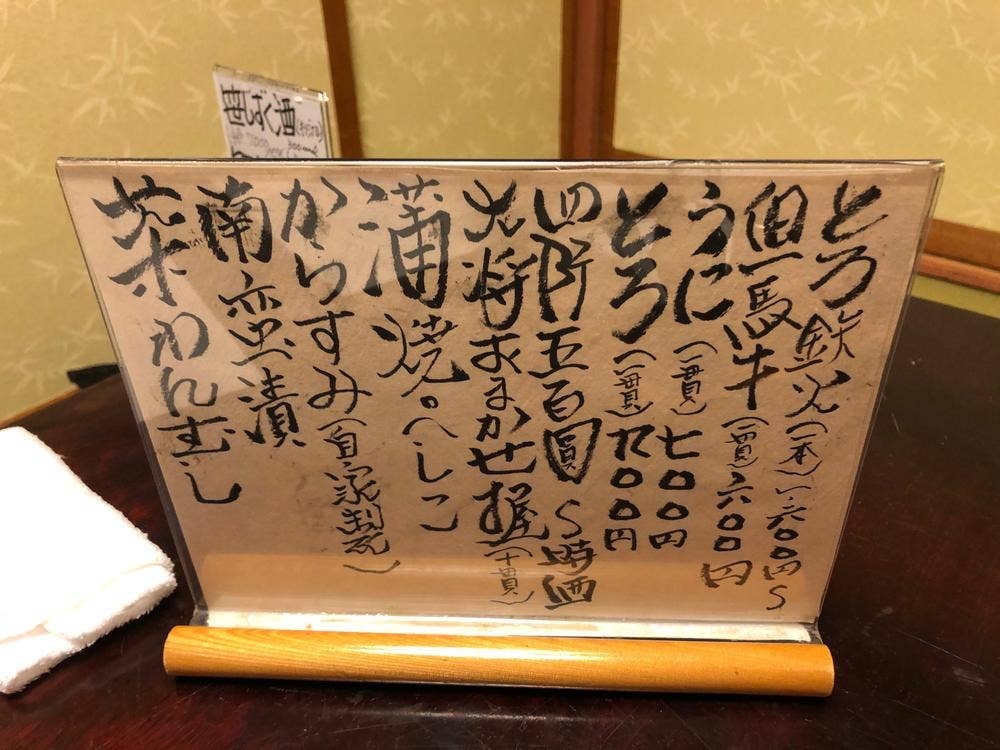 とろ鉄火（一本）一、六〇〇円〜
但馬牛（一貫）六〇〇円
うに（一貫）七〇〇円
とろ（一貫）九〇〇円
四阡五百圓〜時価
大将おまかせ握（十貫）
蒲焼。へしこ
からすみ（自家製）
南蛮漬
茶わんむし
笹しずく酒